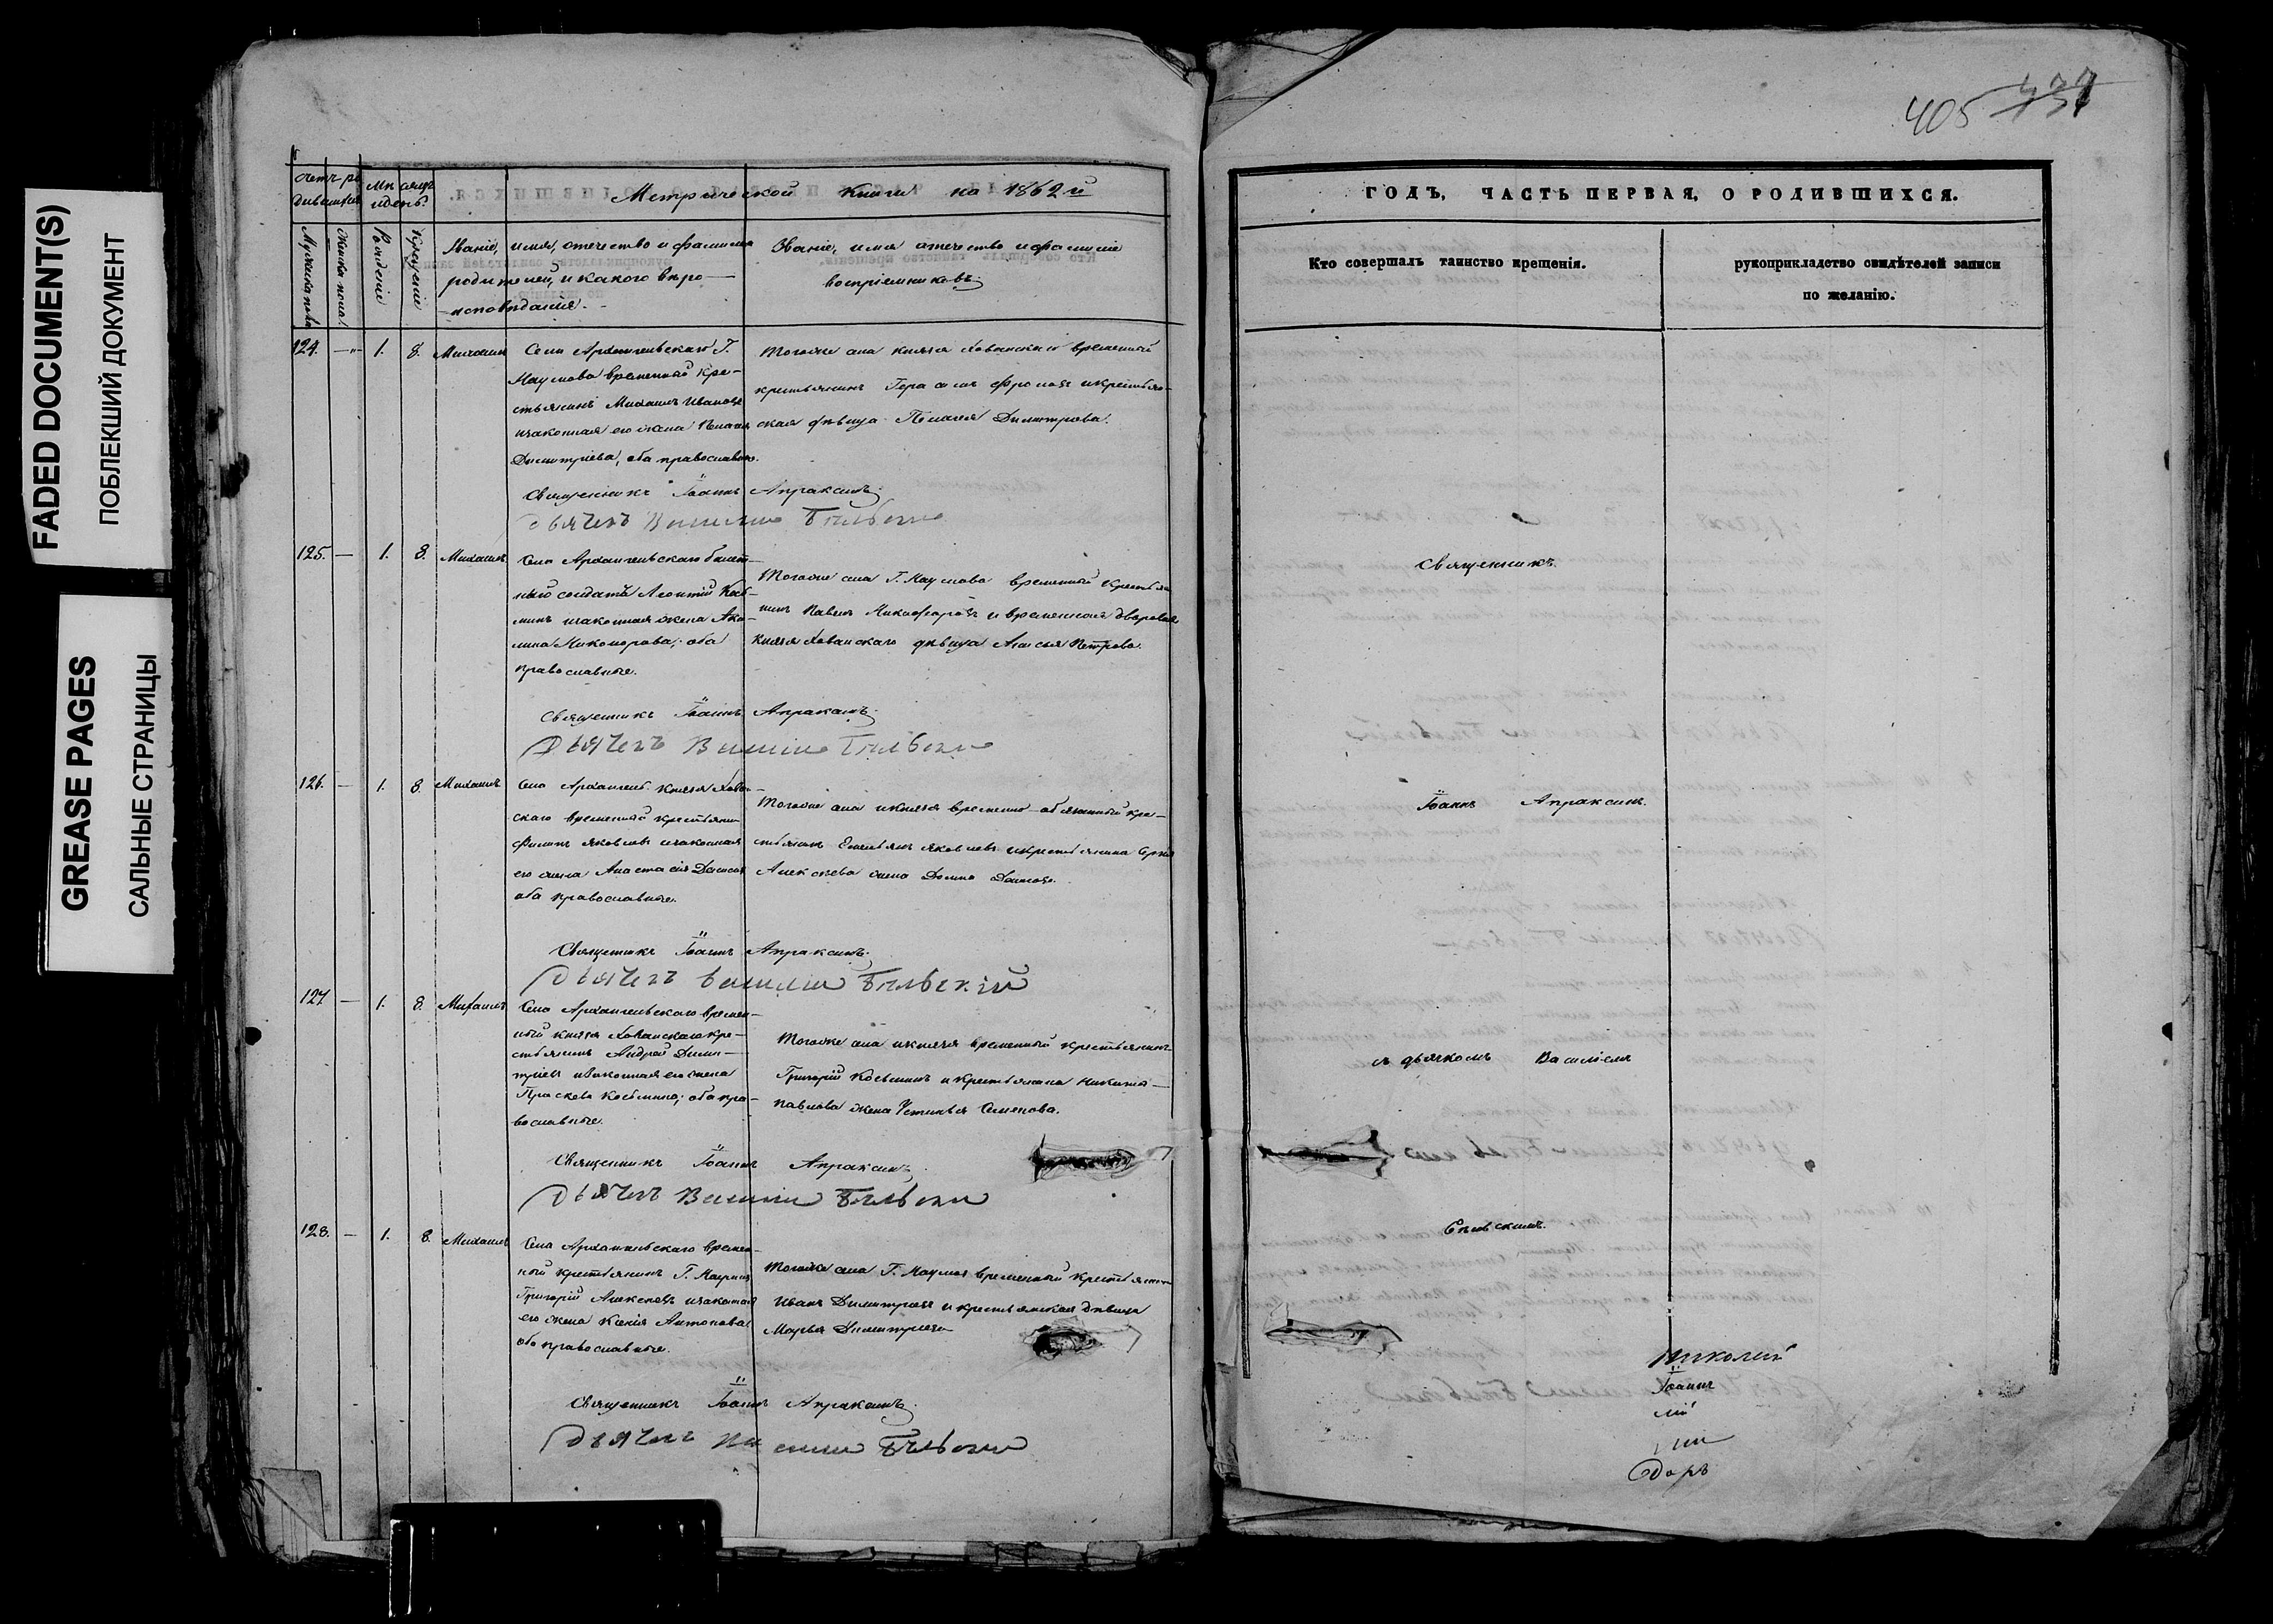 FADED DOCUMENT(S)
ПОБЛЕКШИЙ ДОКУМЕНТ
GREASE PAGES
САЛЬНЫЕ СТРАНИЦЫ
Метрической книги на 1862 й
Званіе, имя, отечество и фамилия
родителей, и какого веро-
исповѣданія.
Званіе, имя отечество и фамиліе
воспріемниковъ.
Мужеска пола
Женска пола
Рожденіе
Крещеніе
124. 1. 8. Михаилъ
Села Архангельскаго Г.
Наумова временный кре-
стьянинъ Михаилъ Ивановъ
изаконная его жена Пелагея
Димитріева, оба православные.
Тогоже села князя Хованскаго временный
крестьянинъ Герасимъ Фроловъ икрестьян-
ская дѣвица Пелагея Димитрова.
Священникъ Іоаннъ Апраксинъ.
Дьячекъ Василий Бѣльский
125. — 1. 8. Михаилъ
Села Архангельскаго билет-
ный солдатъ Леонтій Козь-
минъ изаконная жена Аку-
лина Никонорова; оба
православные.
Тогоже села Г. Наумова временный крестья-
нинъ Павелъ Никифоровъ и временная дворовая
Князя Хованскаго дѣвица Анисья Петрова.
Священникъ Іоаннъ Апраксинъ.
Дьячекъ Василий Бѣльский
126. — 1. 8. Михаилъ
Села Архангельс. князя Хован-
скаго временный крестьянин
Филипъ Яковлевъ изаконная
его жена Анастасія
оба православные.
Тогоже села икнязя временно-обязанный кре-
стьянинъ Емельянъ Яковлевъ икрестьянина
Алексѣева жена Домна
Священникъ Іоаннъ Апраксинъ.
Дьячекъ Василий Бѣльскій
127 — 1. 8. Михаилъ
Села Архангельскаго времен-
ный князя Хованскаго кре-
стьянинъ Андрей Дими-
тріевъ изаконная его жена
Прасковья Козьмина; оба пра-
вославные.
Тогоже села икнязя временный крестьянинъ
Григорій Козьминъ и крестьянина Никиты
Павлова жена Устинья Семенова.
Священникъ Іоаннъ Апраксинъ.
Дьячекъ Василий Бѣльский
128. — 1. 8. Михаилъ
Села Архангельскаго времен-
ный крестьянинъ Г. Наумова
Григорій Алексѣевъ изаконная
его жена Ксенія Антонова
оба православные.
Тогоже села Г. Наумова временный крестьянинъ
Иванъ Димитріевъ и крестьянская дѣвица
Марья Димитріева
Священникъ Іоаннъ Апраксинъ.
Дьячекъ Василий Бѣльский
405 437
ГОДЪ, ЧАСТЬ ПЕРВАЯ, О РОДИВШИХСЯ.
Кто совершалъ таинство крещенія.
рукоприкладство свидѣтелей записи
по желанію.
Священникъ
Іоаннъ Апраксинъ.
съ дьячкомъ Василіемъ
Бѣльскимъ.
Николай
Іоаннъ
лій
Доръ